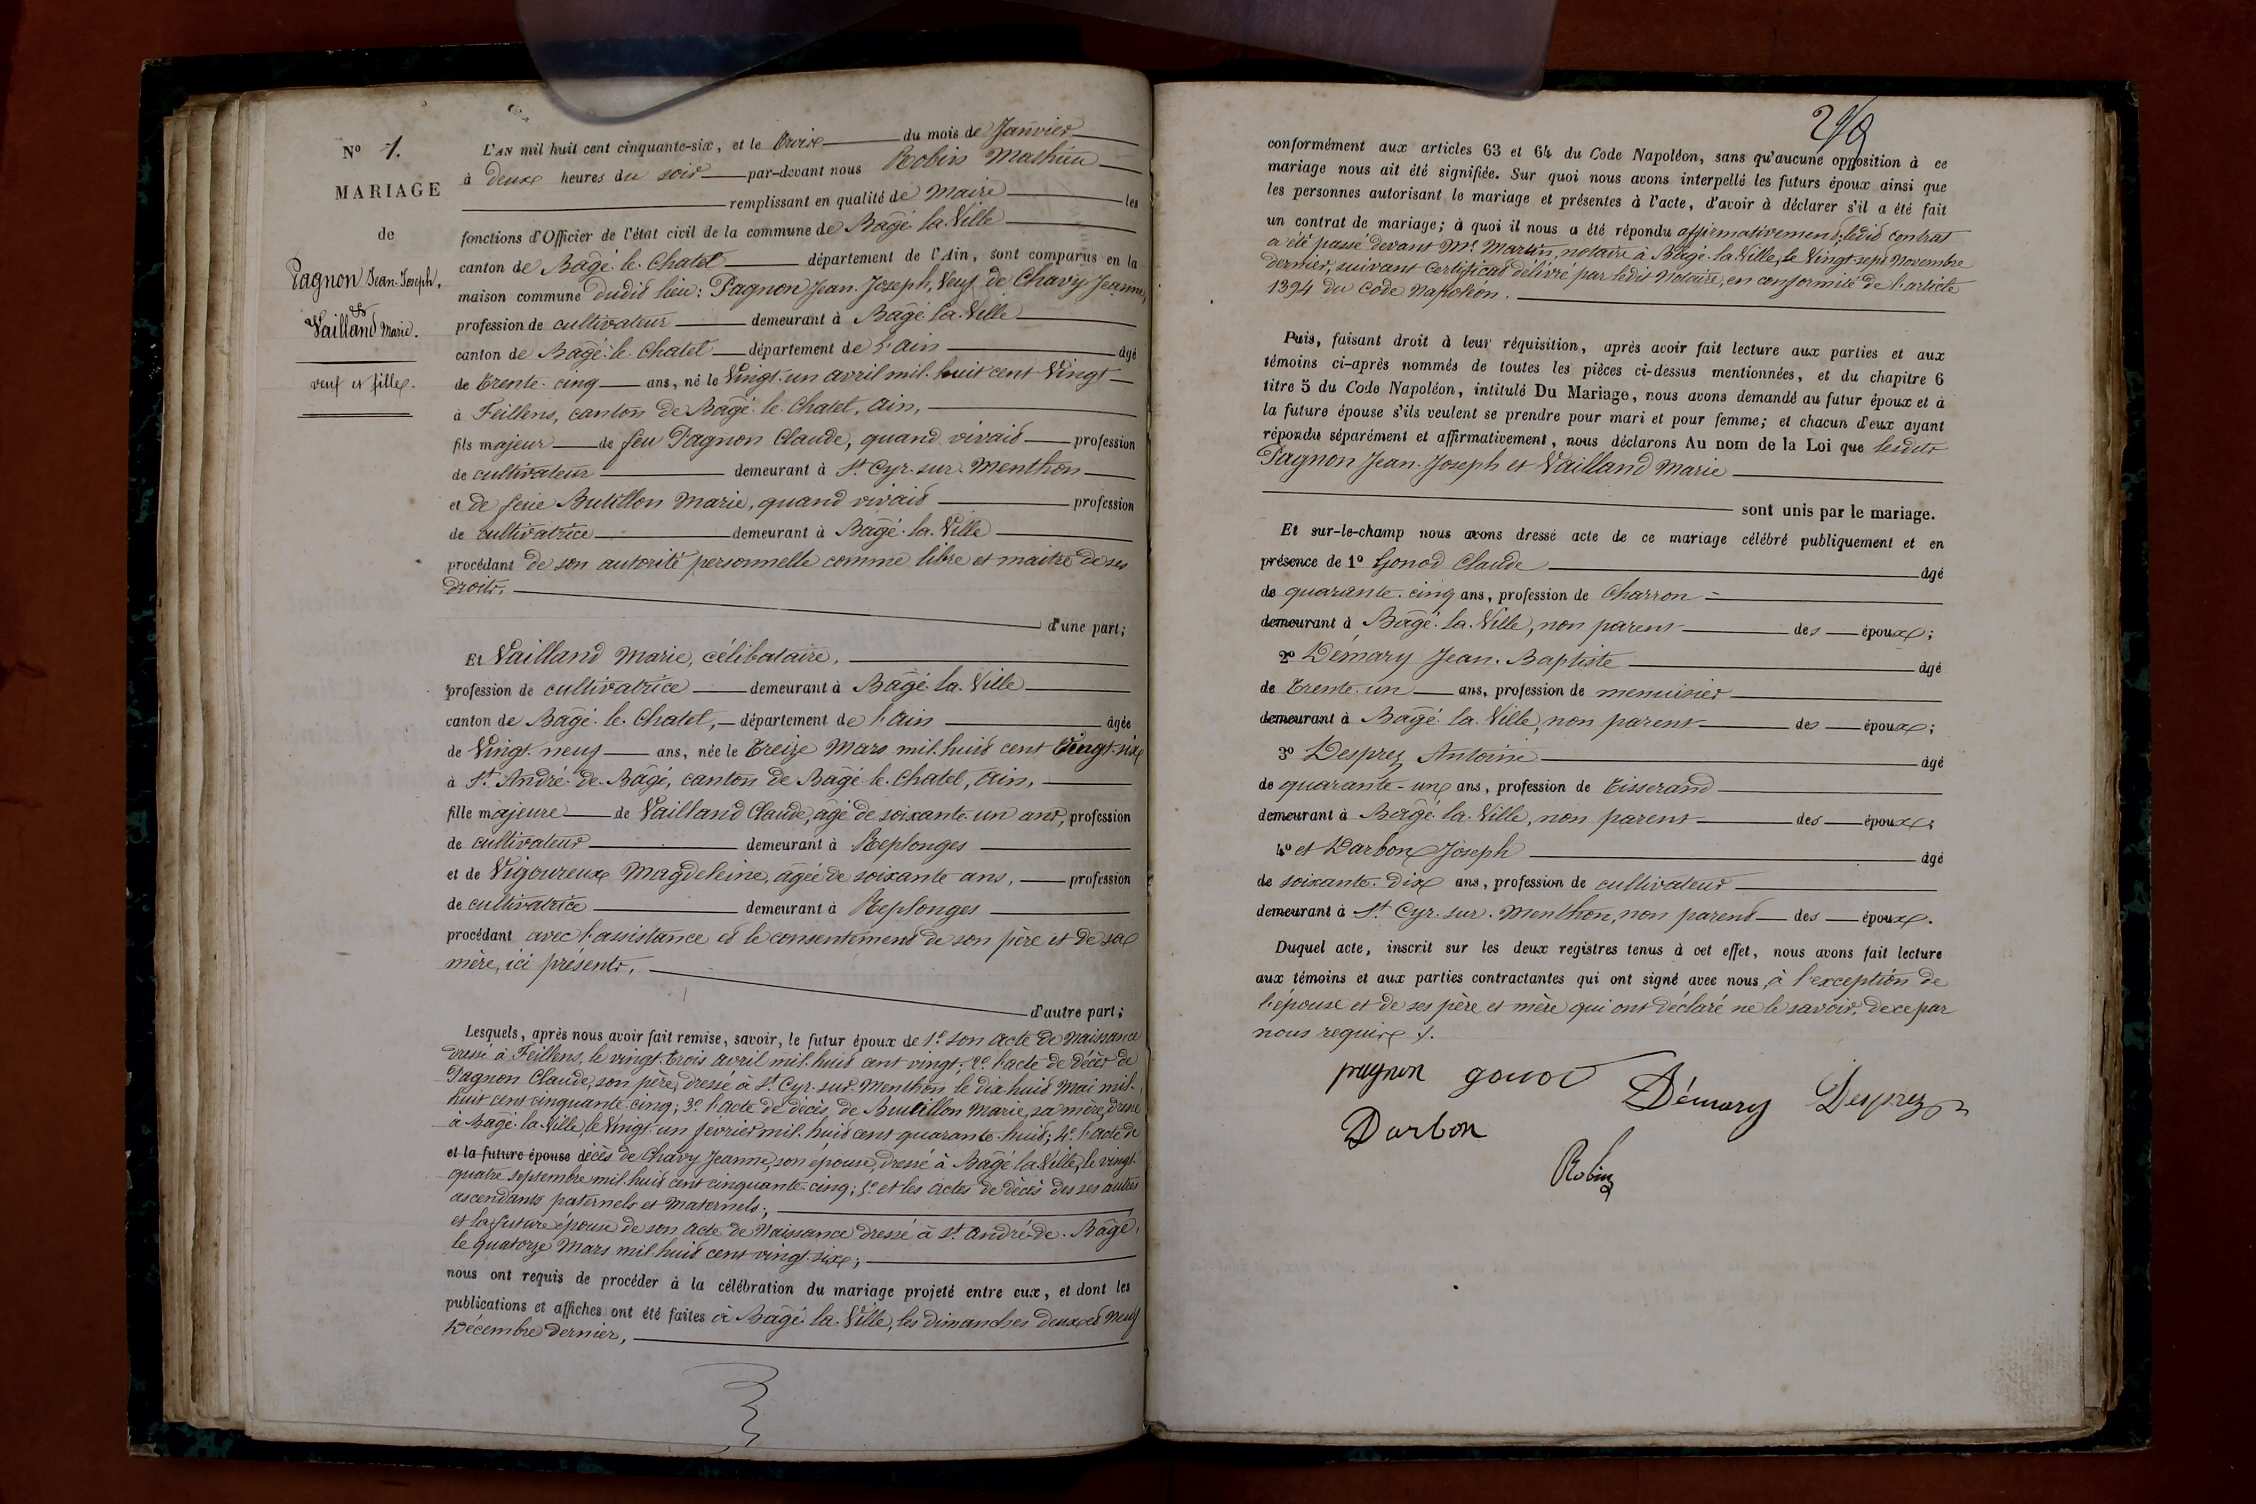 N° 1.
MARIAGE
de
Pagnon Jean-Joseph,
&
Vailland Marie.
veuf et fille.
L'AN mil huit cent cinquante-six, et le trois du mois de Janvier
à deux heures du soir par-devant nous Robin Mathieu
remplissant en qualité de Maire les
fonctions d'Officier de l'état civil de la commune de Bâgé-la-Ville
canton de Bâgé-le-Chatel département de l'Ain, sont comparus en la
maison commune dudit lieu : Pagnon Jean-Joseph, Veuf de Chavy Jeanne,
profession de cultivateur demeurant à Bâgé-la-Ville
canton de Bâgé-le-Chatel département de l'Ain âgé
de trente-cinq ans, né le Vingt-un avril mil-huit cent Vingt
à Feillens, canton de Bâgé-le-Chatel, Ain,
fils majeur de feu Pagnon Claude, quand vivait profession
de cultivateur demeurant à St Cyr-sur-Menthon
et de feue Butillon Marie, quand vivait profession
de cultivatrice demeurant à Bâgé-la-Ville
procédant de son autorité personnelle comme libre et maitre de ses
droits, d'une part;
Et Vailland Marie, célibataire,
profession de cultivatrice demeurant à Bâgé-la-Ville
canton de Bâgé-le-Chatel, département de l'Ain âgée
de Vingt-neuf ans, née le Treize Mars mil-huit cent Vingt-six
à St André-de-Bâgé, canton de Bâgé-le-Chatel, Ain,
fille majeure de Vailland Claude, âgé de soixante-un ans, profession
de cultivateur demeurant à Replonges
et de Vigoureux Magdeleine, âgée de soixante ans, profession
de cultivatrice demeurant à Replonges
procédant avec l'assistance et le consentement de son père et de sa
mère, ici présents,
d'autre part;
Lesquels, après nous avoir fait remise, savoir, le futur époux de 1° son acte de Naissance
dressé à Feillens, le vingt-trois avril mil-huit cent vingt; 2° l'acte de décès de
Pagnon Claude, son père, dressé à St Cyr-sur-Menthon le dix-huit Mai mil-
huit cent cinquante-cinq; 3° l'acte de décès de Butillon Marie, sa mère, dressé
à Bâgé-la-Ville, le Vingt-un février mil-huit cent quarante-huit; 4° l'acte de
et la future épouse décès de Chavy Jeanne, son épouse, dressé à Bâgé-la-Ville, le vingt-
quatre septembre mil-huit cent cinquante-cinq; 5° et les actes de décès des ses autres
ascendants paternels et maternels;
et la future épouse de son acte de Naissance dressé à St André-de-Bâgé,
le quatorze Mars mil-huit cent vingt-six;
nous ont requis de procéder à la célébration du mariage projeté entre eux, et dont les
publications et affiches ont été faites à Bâgé-la-Ville, les dimanches deux et neuf
Décembre dernier,
conformément aux articles 63 et 64 du Code Napoléon, sans qu'aucune opposition à ce
mariage nous ait été signifiée. Sur quoi nous avons interpellé les futurs époux ainsi que
les personnes autorisant le mariage et présentes à l'acte, d'avoir à déclarer s'il a été fait
un contrat de mariage; à quoi il nous a été répondu affirmativement, ledit contrat
a été passé devant Me Martin, notaire à Bâgé-la-Ville, le Vingt-sept Novembre
dernier, suivant Certificat délivré par ledit Notaire, en conformité de l'article
1394 du Code Napoléon.
Puis, faisant droit à leur réquisition, après avoir fait lecture aux parties et aux
témoins ci-après nommés de toutes les pièces ci-dessus mentionnées, et du chapitre 6
titre 5 du Code Napoléon, intitulé Du Mariage, nous avons demandé au futur époux et à
la future épouse s'ils veulent se prendre pour mari et pour femme; et chacun d'eux ayant
répondu séparément et affirmativement, nous déclarons Au nom de la Loi que lesdits
Pagnon Jean-Joseph et Vailland Marie
sont unis par le mariage.
Et sur-le-champ nous avons dressé acte de ce mariage célébré publiquement et en
présence de 1° Gonod Claude âgé
de quarante-cinq ans, profession de Charron
demeurant à Bâgé-la-Ville, non parent des époux;
2° Démary Jean-Baptiste âgé
de trente-un ans, profession de menuisier
demeurant à Bâgé-la-Ville, non parent des époux;
3° Desprez Antoine âgé
de quarante-un ans, profession de Tisserand
demeurant à Bâgé-la-Ville, non parent des époux;
4° et Darbon Joseph âgé
de soixante-dix ans, profession de cultivateur
demeurant à St Cyr-sur-Menthon, non parent des époux.
Duquel acte, inscrit sur les deux registres tenus à cet effet, nous avons fait lecture
aux témoins et aux parties contractantes qui ont signé avec nous, à l'exception de
l'épouse et de ses père et mère qui ont déclaré ne le savoir, de ce par
nous requis.
pagnon gonod Démary Desprez
Darbon
Robin